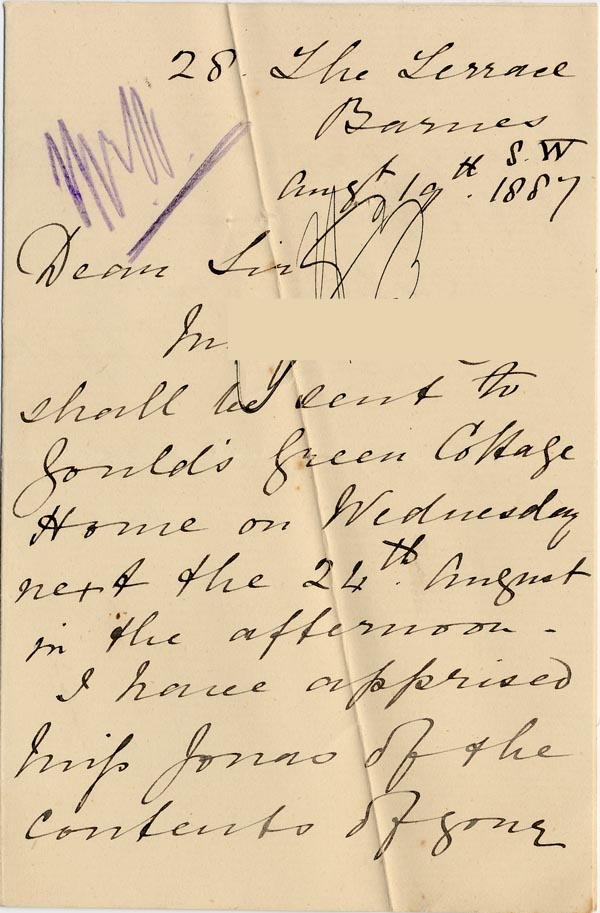 28. The Terrace
Barnes
S.W
Augt 19th. 1887
Dear Sir
M
shall be sent to
Gould's Green Cottage
Home on Wednesday
next the 24th. August
in the afternoon -
I have apprised
Miss Jonas of the
contents of your